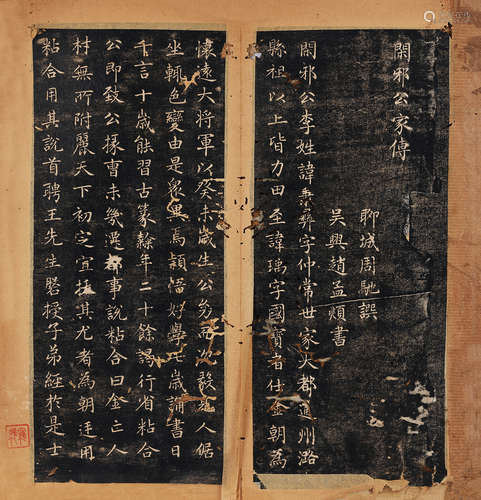 閑邪公家傳
聊城周馳譔
吳興趙孟頫書
閑邪公李姓諱秉彝字仲常世家大都通州潞
縣祖以上皆力田至諱瑀字國寶者仕金朝為
懷遠大將軍以癸未歲生公幼而沈毅
坐輒色變由是衆異焉穎悟好學七歲誦書日
千言十歲能習古篆隸年二十餘謁行省粘合
公即致公掾曹未幾選都事說粘合曰金亡人
材無所附麗天下初定宜拔其尤者為朝廷用
粘合用其說首聘王先生磐授子弟經於是士